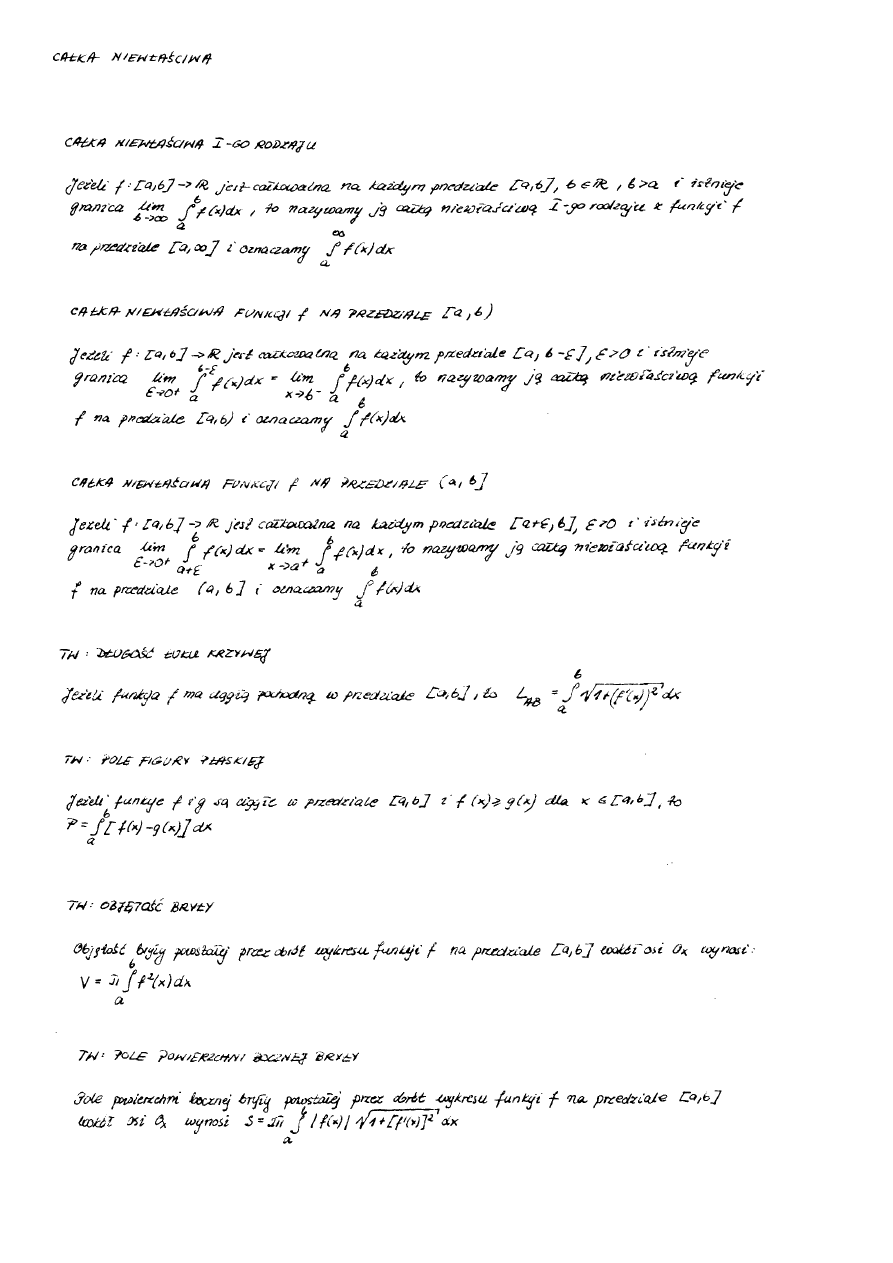 CAŁKA NIEWŁAŚCIWA
CAŁKA NIEWŁAŚCIWA I-GO RODZAJU
Jeżeli f: [a,b] → ℝ jest całkowalna na każdym przedziale [a,b], b ∈ ℝ, b>a i istnieje
granica lim_{b→∞} ∫_a^b f(x)dx, to nazywamy ją całką niewłaściwą I-go rodzaju z funkcji f
na przedziale [a,∞] i oznaczamy ∫_a^∞ f(x)dx
CAŁKA NIEWŁAŚCIWA FUNKCJI f NA PRZEDZIALE [a,b)
Jeżeli f: [a,b] → ℝ jest całkowalną na każdym przedziale [a, b-ε], ε>0 i istnieje
granica lim_{ε→0+} ∫_a^{b-ε} f(x)dx = lim_{x→b-} ∫_a^b f(x)dx, to nazywamy ją całką niewłaściwą funkcji
f na przedziale [a,b) i oznaczamy ∫_a^b f(x)dx
CAŁKA NIEWŁAŚCIWA FUNKCJI f NA PRZEDZIALE (a,b]
Jeżeli f: [a,b] → ℝ jest całkowalna na każdym przedziale [a+ε,b], ε>0 i istnieje
granica lim_{ε→0+} ∫_{a+ε}^b f(x)dx = lim_{x→a+} ∫_a^b f(x)dx, to nazywamy ją całką niewłaściwą funkcji
f na przedziale (a,b] i oznaczamy ∫_a^b f(x)dx
TW: DŁUGOŚĆ ŁUKU KRZYWEJ
Jeżeli funkcja f ma ciągłą pochodną w przedziale [a,b], to L_{AB} = ∫_a^b √(1+(f'(x))²) dx
TW: POLE FIGURY PŁASKIEJ
Jeżeli funkcje f i g są ciągłe w przedziale [a,b] i f(x) ≥ g(x) dla x ∈ [a,b], to
P = ∫_a^b [f(x)-g(x)]dx
TW: OBJĘTOŚĆ BRYŁY
Objętość bryły powstałej przez obrót wykresu funkcji f na przedziale [a,b] wokół osi Ox wynosi:
V = π ∫_a^b f²(x)dx
TW: POLE POWIERZCHNI BOCZNEJ BRYŁY
Pole powierzchni bocznej bryły powstałej przez obrót wykresu funkcji f na przedziale [a,b]
wokół osi Ox wynosi S = 2π ∫_a^b |f(x)| √(1+[f'(x)]²) dx